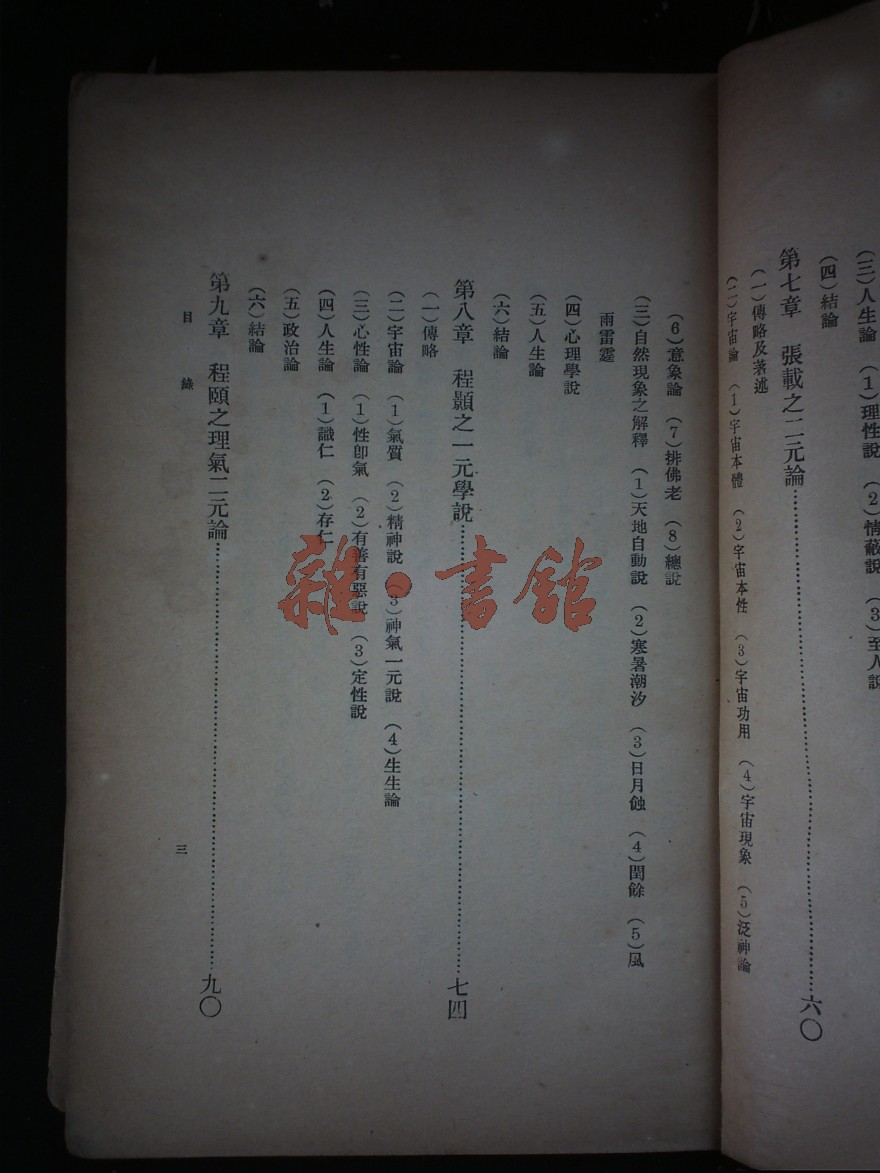 (三)人生論　(1)理性說　(2)情蔽說　(3)至人說
(四)結論
第七章　張載之二元論……六〇
(一)傳略及著述
(二)宇宙論　(1)宇宙本體　(2)宇宙本性　(3)宇宙功用　(4)宇宙現象　(5)泛神論
(6)意象論　(7)排佛老　(8)總說
(三)自然現象之解釋　(1)天地自動說　(2)寒暑潮汐　(3)日月蝕　(4)閏餘　(5)風
雨雷霆
(四)心理學說
(五)人生論
(六)結論
第八章　程顥之一元學說……七四
(一)傳略
(二)宇宙論　(1)氣質　(2)精神說　(3)神氣一元說　(4)生生論
(三)心性論　(1)性卽氣　(2)有善有惡說　(3)定性說
(四)人生論　(1)識仁　(2)存仁
(五)政治論
(六)結論
第九章　程頤之理氣二元論……九〇
目錄
三
雜·書館